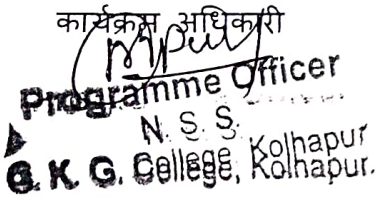 कार्यक्रम अधिकारी
Programme Officer
N. S. S.
G. K. G. College, Kolhapur.